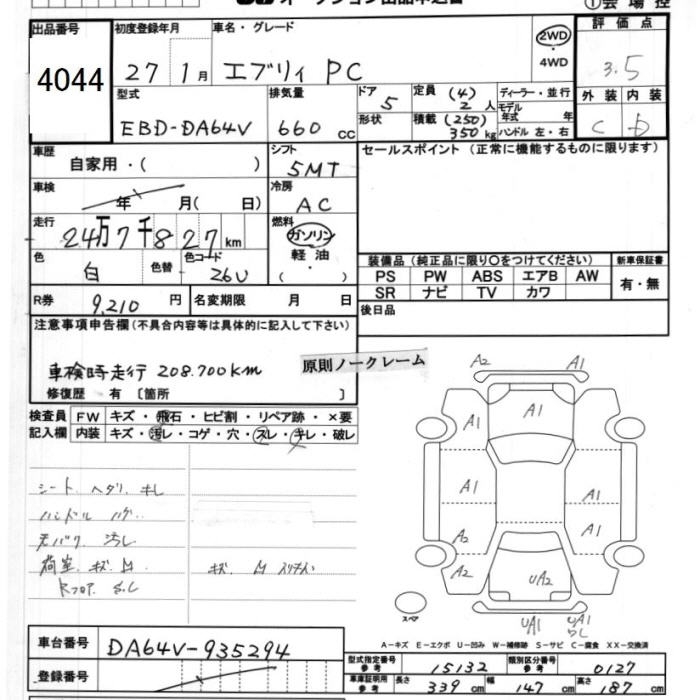 ①会場控
出品番号 初度登録年月 車名・グレード 評価点
4044 27 1月 エブリィ PC 2WD 3.5
4WD
型式 排気量 ドア 5 定員 (4) 2人 ディーラー・並行 外装 内装
EBD-DA64V 660 cc 形状 積載 (250) 350 kg モデル年式 年 C b
ハンドル 左・右
車歴 自家用・( ) シフト 5MT セールスポイント (正常に機能するものに限ります)
車検 年 月( 日) 冷房 AC
走行 24万7千827km 燃料 ガソリン
軽油
色 白 色替 色コード 26U ・( )
装備品 (純正品に限り○をつけてください) 新車保証書
PS PW ABS エアB AW 有・無
SR ナビ TV カワ
R券 9,210 円 名変期限 月 日 後日品
注意事項申告欄 (不具合内容等は具体的に記入して下さい)
車検時走行 208.700km
原則ノークレーム
修復歴 有 [箇所 ]
検査員 FW キズ・飛石・ヒビ割・リペア跡・×要
記入欄 内装 キズ・汚レ・コゲ・穴・スレ・キレ・破レ
シート ヘタリ キレ
ハンドル ハゲ
天バリ 汚レ
荷室 キズ M キズ M
A2 A1
A1
A1 A1
A1 A1
A2 A1
A2 UA2
UA1 UA1
スペア
A-キズ E-エクボ U-凹み W-補修跡 S-サビ C-腐食 XX-交換済
車台番号 DA64V-935294
登録番号
型式指定番号 参考 15132 類別区分番号 参考 0127
車庫証明用 参考 長さ 339 cm 幅 147 cm 高さ 187 cm